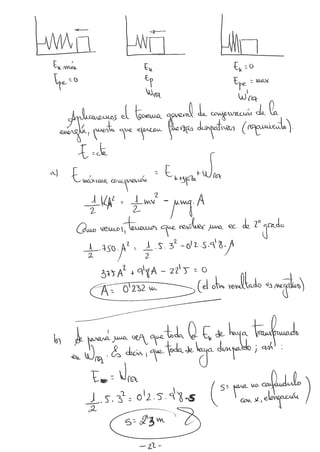 Ek máx Ek Ek = 0
Epe = 0 Ep Epe = max
WFR W'FR
Aplicaremos el teorema general de conservación de la
energía, puesto que ejercen fuerzas disipativas (rozamiento).
E = cte
a) E máxima compresión = Ek + WFR
1/2 KA² = 1/2 mv² - μmg.A
Como vemos, tenemos que resolver una ec. de 2º grado
1/2 . 750 . A² = 1/2 . 5 . 3² - 0'2 . 5 . 9'8 . A
375A² + 9'8A - 22'5 = 0
A = 0'232 m (el otro resultado es negativo)
b) Se parará una vez que toda la Ek se haya transformado
en WFR. Es decir, que toda se haya disipado; así:
E = WFR
1/2 . 5 . 3² = 0'2 . 5 . 9'8 . s (s = para no confundirlo
con x, elongación)
s = 2'3 m
- 22 -